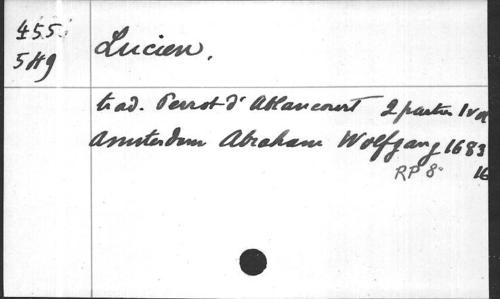 455.
549
Lucien.
trad. Perrot d'Ablancourt 2 parties 1 vol
Amsterdam Abraham Wolfgang 1683
RP 8° 16